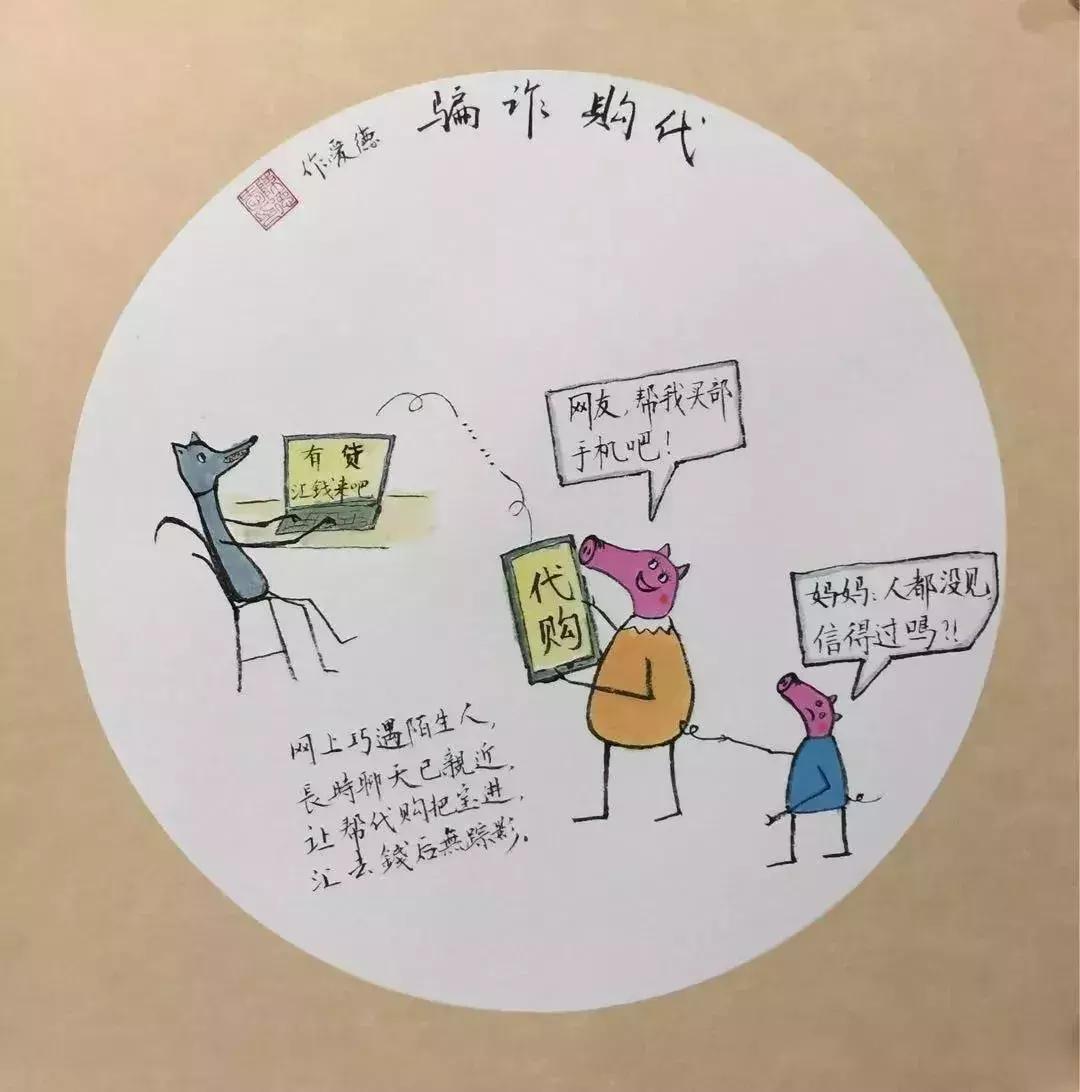 代购诈骗
德爱作
有货
汇钱来吧
网友,帮我买部
手机吧!
代
购
妈妈:人都没见,
信得过吗?!
网上巧遇陌生人,
長時聊天已親近,
让帮代购把宝进,
汇去錢后無踪影。